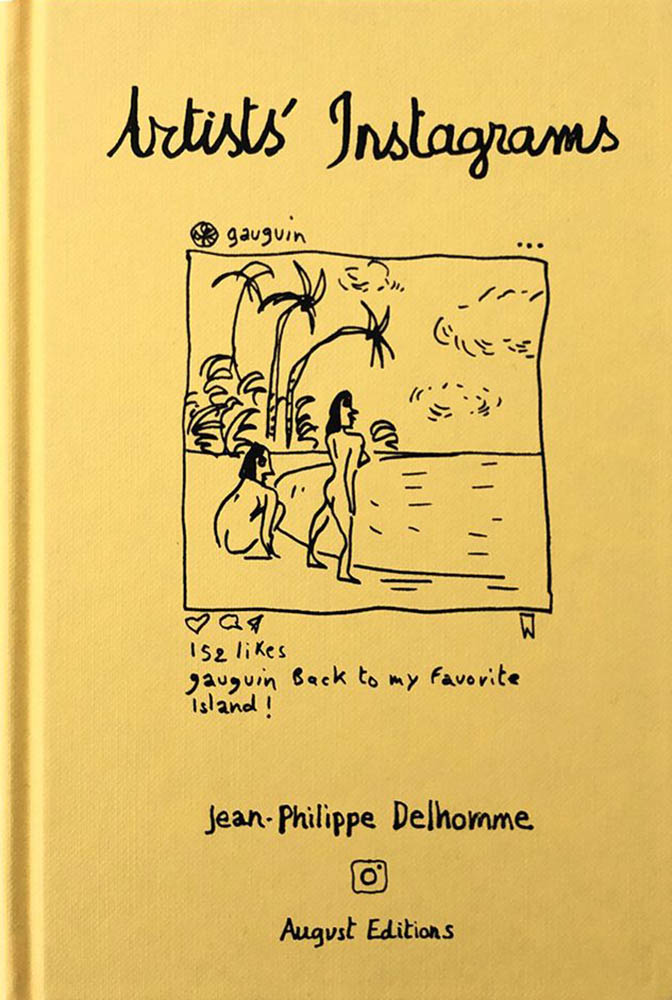 Artists' Instagrams
gauguin ...
152 likes
gauguin Back to my favorite
Island!
Jean-Philippe Delhomme
August Editions